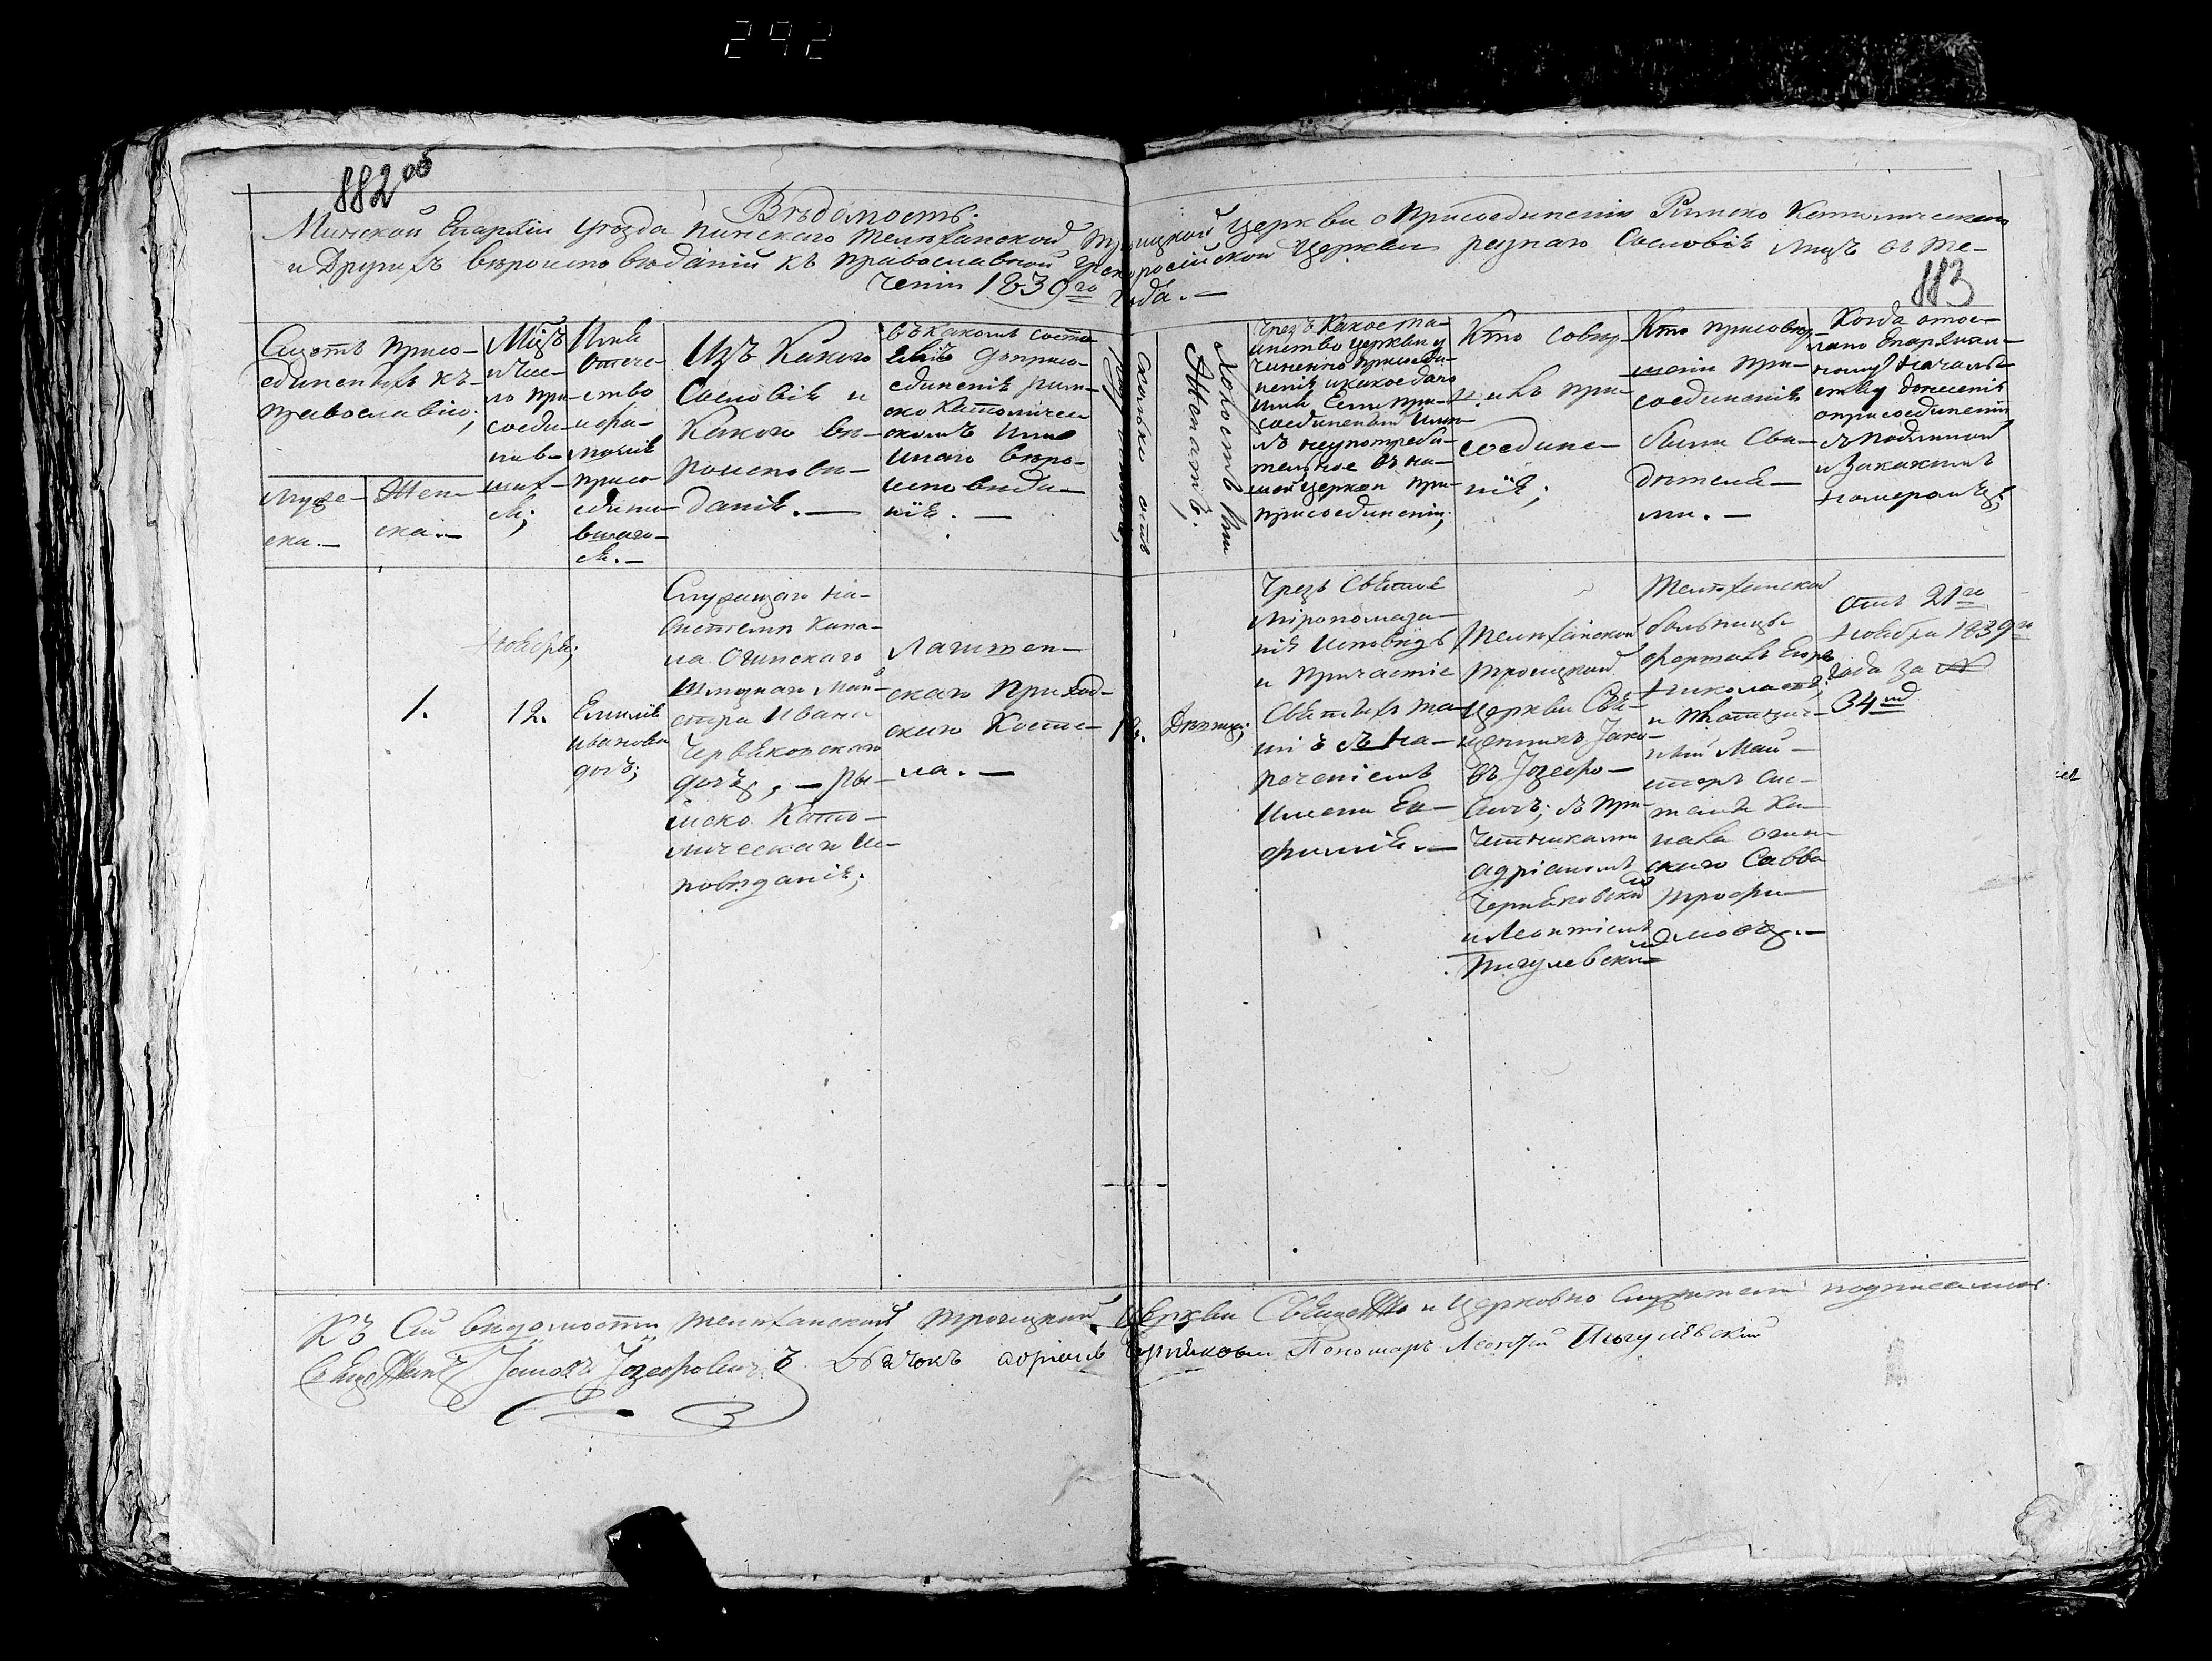 292
882 об
883
Вѣдомость.
Минской Епархіи уѣзда пинскаго Телѣханской Троицкой Церкви о Присоединеніи Римско Католическаго
и Другихъ вѣроисповѣданій къ православной грекоросійской Церкви разнаго Сословія лицъ въ те-
ченіи 1839го года.—
Счетъ присо-
единенныхъ къ-
православію;
Муже-
ска.—
Жен-
ска.—
Мѣц
и Чис-
ло при-
соеди-
нив-
ших-
ся;
Имя
Отече-
ство
и фа-
милія
присо-
едини-
вшаго-
ся.—
Изъ Какого
Сословія и
Какого вѣ-
роисповѣ-
данія.—
Въ какомъ состо-
яніи до присо-
единенія рим-
ско Католичес-
комъ Или
инаго вѣро-
исповѣда-
нія.—
Сколько отъ
роду
Холостъ или
Женатъ;
Чрезъ Какое та-
инство церкви у
чинено присоеди-
неніе и какое дано
имя Если при-
соединенный имѣ-
лъ неупотреби-
тельное въ на-
шей церкви при
присоединеніи;
Кто совер-
шилъ при-
соедине-
ніе;
Кто при совер-
шеніи при-
соединенія
были Сви-
дѣтеля-
ми.—
Когда отос-
лано Епархіаль-
ному Началь-
ству донесеніе
о присоединеніи
съ подпиской
и За какимъ
номеромъ;
1.
Ноября;
12.
Емилія
Иванова
дочь;
Служащаго на-
системи Кана-
ла Огинскаго
Шлюзнаго Май-
стра Ивана
Червяковскаго
дочь, — Ры-
мско Като-
лическаго Ис-
повѣданія;
Логишен-
скаго Приход-
скаго Косте-
ла.—
Дѣвица;
Чрезъ Святое
мѵропомаза-
ніе Исповѣдь
и Причастіе
Святыхъ та-
инъ съ на-
реченіемъ
Имени Ев-
фиміе.—
Телѣханской
Троицкой
Церкви Свя-
щенникъ Іако-
въ Іозефо-
вичъ; съ при-
четниками
Адріаномъ
Черняковски
и Леонтіемъ
Пигулевски
Телѣханской
больницы
фершалъ Егоръ
Николаевъ;
и Плотнич-
ный Май-
стеръ сис-
темы Ка-
нала Огин-
скаго Савва
Трофи-
мовъ.—
Отъ 21го
Ноября 1839го
года за №
34мъ
Къ Сей вѣдомости Телѣханской Троицкой Церкви Священно и Церковно Служители подписались.
Священникъ Іаковъ Іозефовичъ Дьячокъ Адріанъ Черняковски Пономаръ Леонтій Пигулевскій